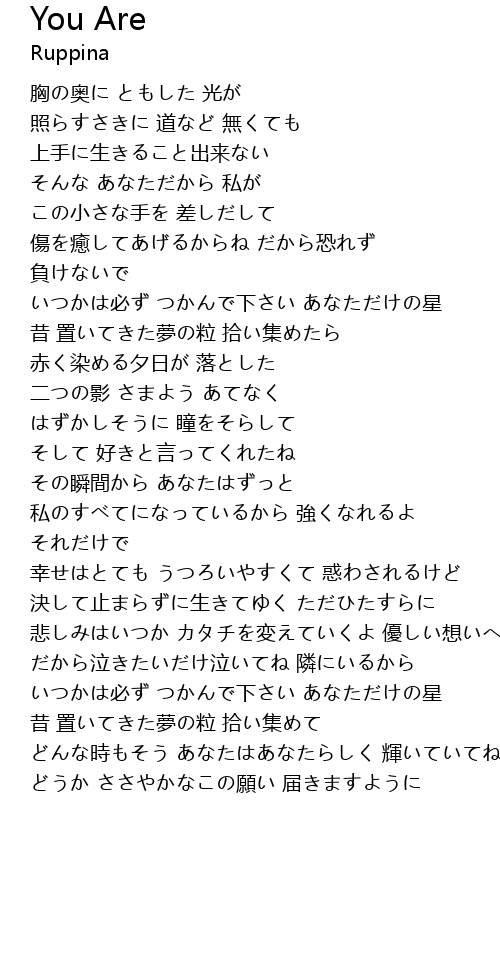 You Are
Ruppina
胸の奥に ともした 光が
照らすさきに 道など 無くても
上手に生きること出来ない
そんな あなただから 私が
この小さな手を 差しだして
傷を癒してあげるからね だから恐れず
負けないで
いつかは必ず つかんで下さい あなただけの星
昔 置いてきた夢の粒 拾い集めたら
赤く染める夕日が 落とした
二つの影 さまよう あてなく
はずかしそうに 瞳をそらして
そして 好きと言ってくれたね
その瞬間から あなたはずっと
私のすべてになっているから 強くなれるよ
それだけで
幸せはとても うつろいやすくて 惑わされるけど
決して止まらずに生きてゆく ただひたすらに
悲しみはいつか カタチを変えていくよ 優しい想いへ
だから泣きたいだけ泣いてね 隣にいるから
いつかは必ず つかんで下さい あなただけの星
昔 置いてきた夢の粒 拾い集めて
どんな時もそう あなたはあなたらしく 輝いていてね
どうか ささやかなこの願い 届きますように